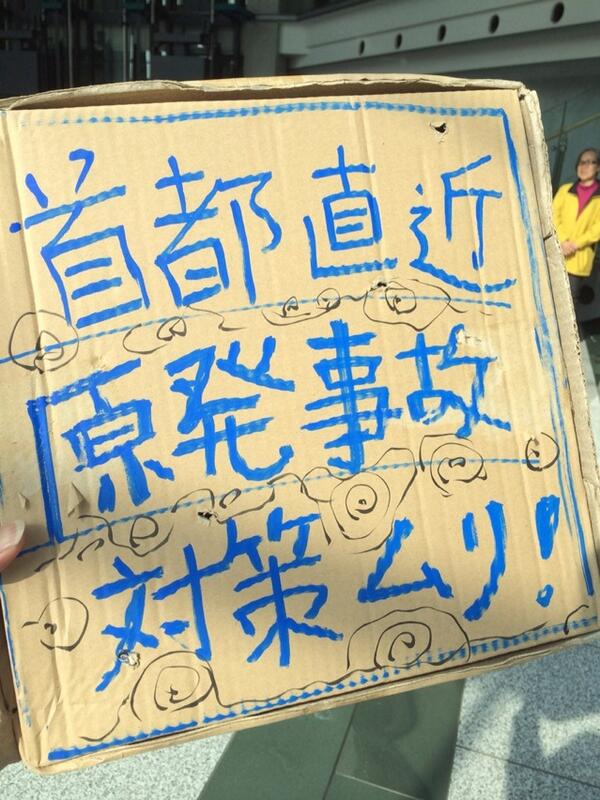 首都直近
原発事故
対策ムリ!